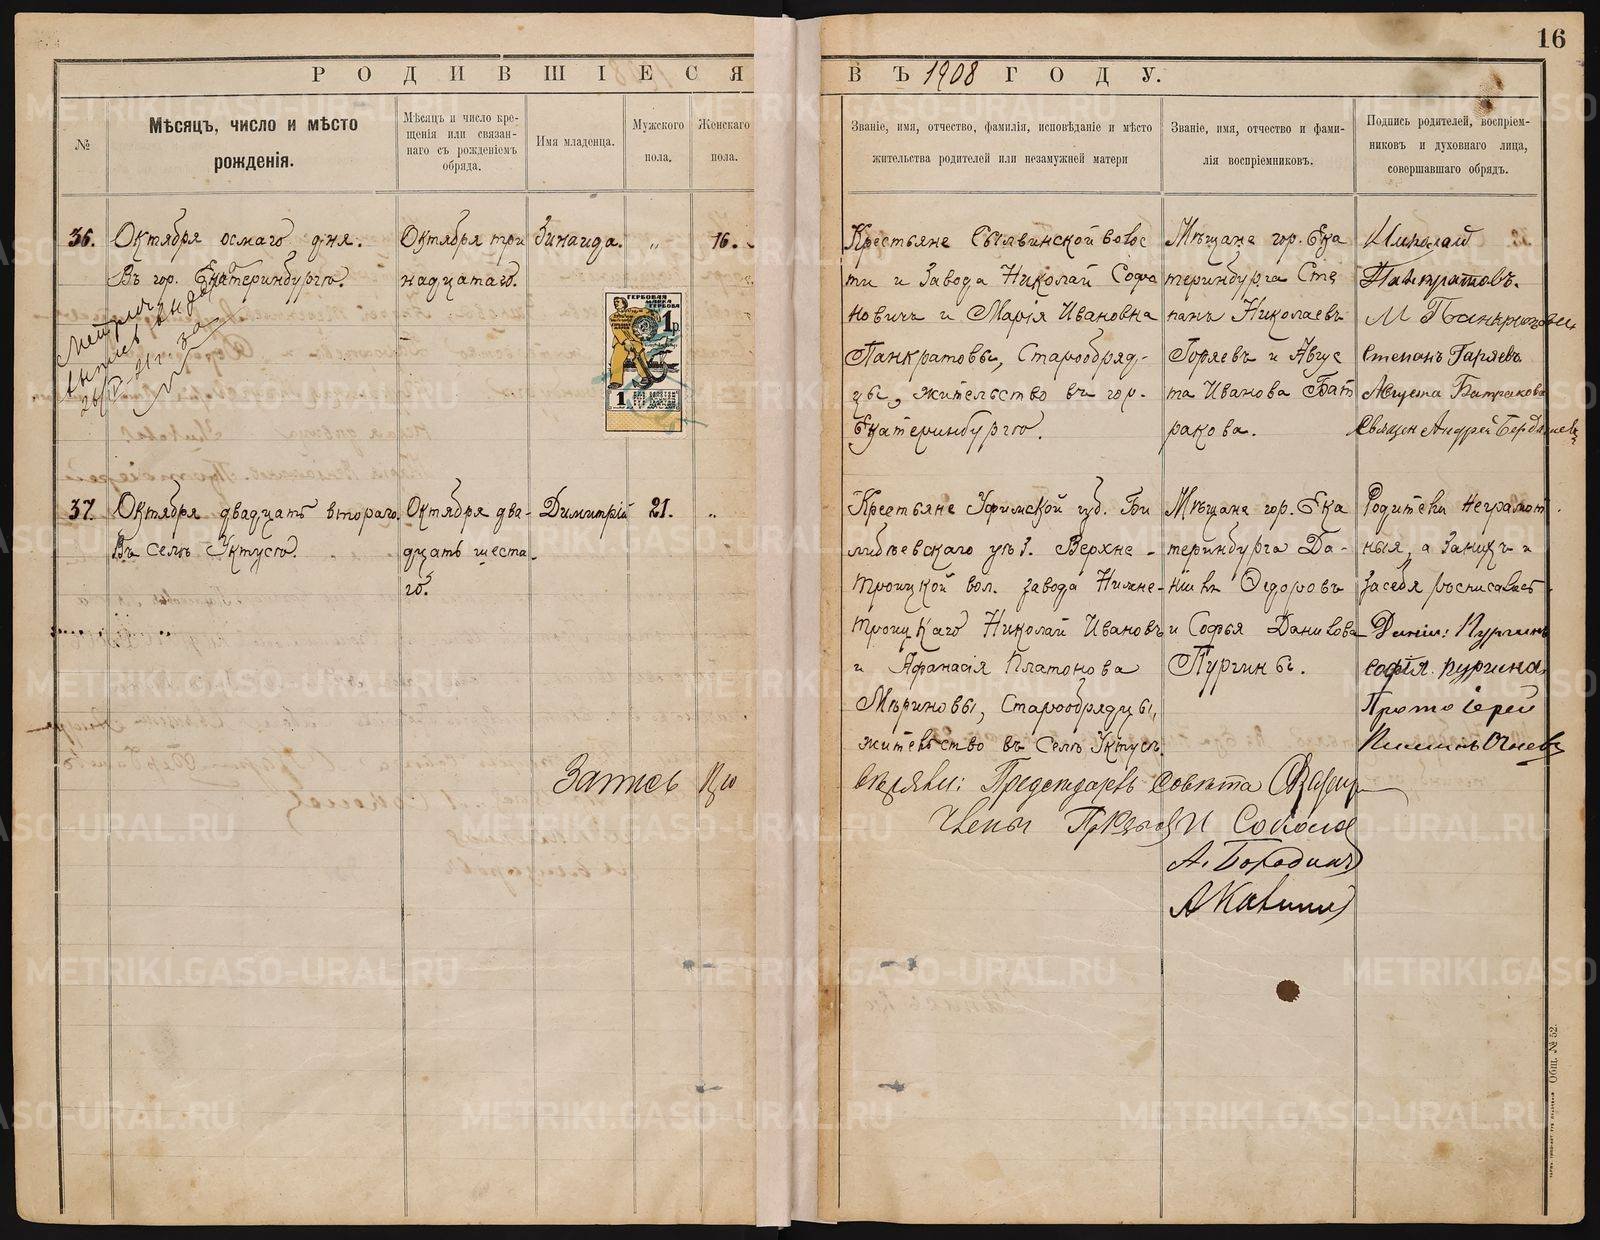 16
РОДИВШІЕСЯ ВЪ 1908 ГОДУ.
№
Мѣсяцъ, число и мѣсто
рожденія.
Мѣсяцъ и число кре-
щенія или связан-
наго съ рожденіемъ
обряда.
Имя младенца.
Мужского
пола.
Женскаго
пола.
Званіе, имя, отчество, фамилія, исповѣданіе и мѣсто
жительства родителей или незамужней матери
Званіе, имя, отчество и фами-
лія воспріемниковъ.
Подпись родителей, воспріем-
никовъ и духовнаго лица,
совершавшаго обрядъ.
36.
Октября осмаго дня.
Въ гор. Екатеринбургѣ.
Октября три
надцатаго.
Зинаида.
„
16.
Крестьяне Сылвинской волос
ти и Завода Николай Софо
новичъ и Марія Ивановна
Панкратовы, Старообряд-
цы, жительство въ гор.
Екатеринбургѣ.
Мѣщане гор. Ека
теринбурга Сте
панъ Николаевъ
Горяевъ и Авгус
та Иванова Бат
ракова.
Николай
Панкратовъ.
М Панкратова
Степанъ Горяевъ
Августа Батракова
Священ Андрей Бердышев
Метрич
выпись выдана
ГЕРБОВАЯ
МАРКА
1р
1
37.
Октября двадцать второго.
Въ селѣ Уктусѣ.
Октября два-
дцать шеста-
го.
Димитрій
21.
„
Крестьяне Уфимской губ. Би
лебѣевскаго уѣз. Верхне-
троицкой вол. завода Нижне-
троицкаго Николай Ивановъ
и Афанасія Платонова
Мѣриновы, Старообрядцы,
жительство въ селѣ Уктусѣ.
Мѣщане гор. Ека
теринбурга Да-
нiилъ Ѳедоровъ
и Софья Данилова
Пургины.
Родители неграмот
ныя, а за нихъ и
за себя росписались
Данiил: Пургинъ
софія пургина
Протоіерей
Запись
вѣряли: Председатель Совѣта
Члены
И Соколов
А. Бородин
А Калинин
Общ. № 52.
METRIKI.GASO-URAL.RU